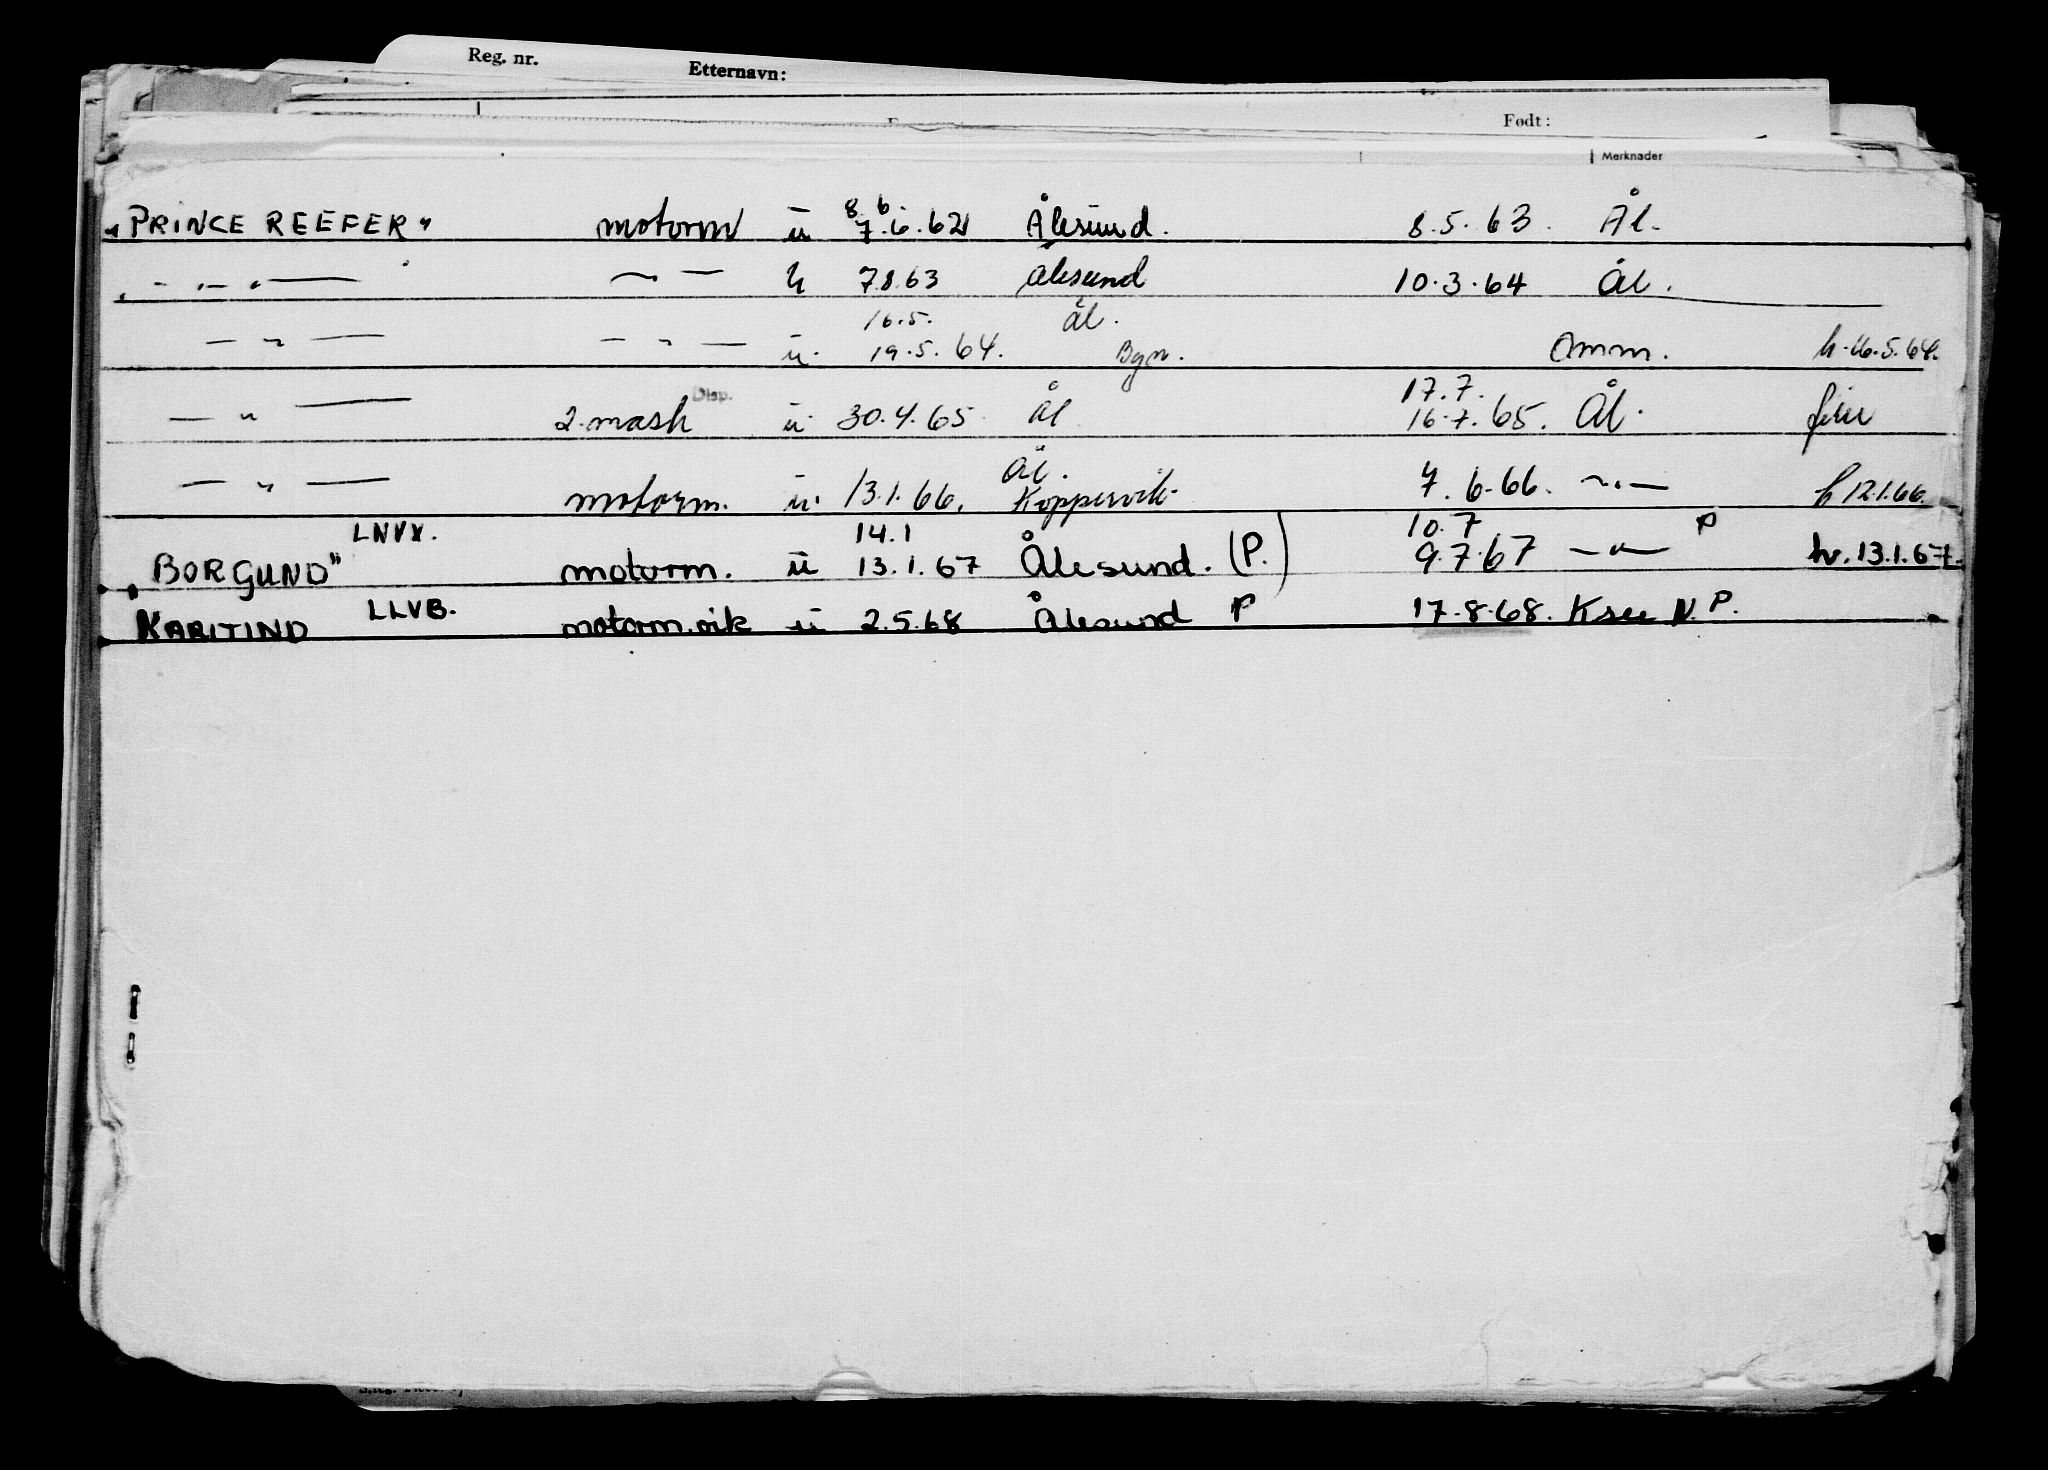 Reg. nr. Etternavn:
Født:
Merknader
"PRINCE REEFER" motorm u 8 6 7.6.62 Ålesund. 8.5.63. Ål.
— " — — " — h 7.8.63 Ålesund 10.3.64 Ål.
16.5. Ål.
— " — — " — u. 19.5.64. Bgn. Omm. h.16.5.64.
Disp. 17.7.
— " — 2.mask u. 30.4.65 Ål 16.7.65. Ål.
Ål.
— " — motorm. u. 13.1.66. Koppervik 7.6.66. — " — h 12.1.66.
LNVX. 14.1 10.7 P
BORGUND" motorm. u 13.1.67 Ålesund. (P.) 9.7.67 — " — hv. 13.1.67.
KARITIND LLVB. motorm.vik u 2.5.68 Ålesund P 17.8.68. Ksu N. P.